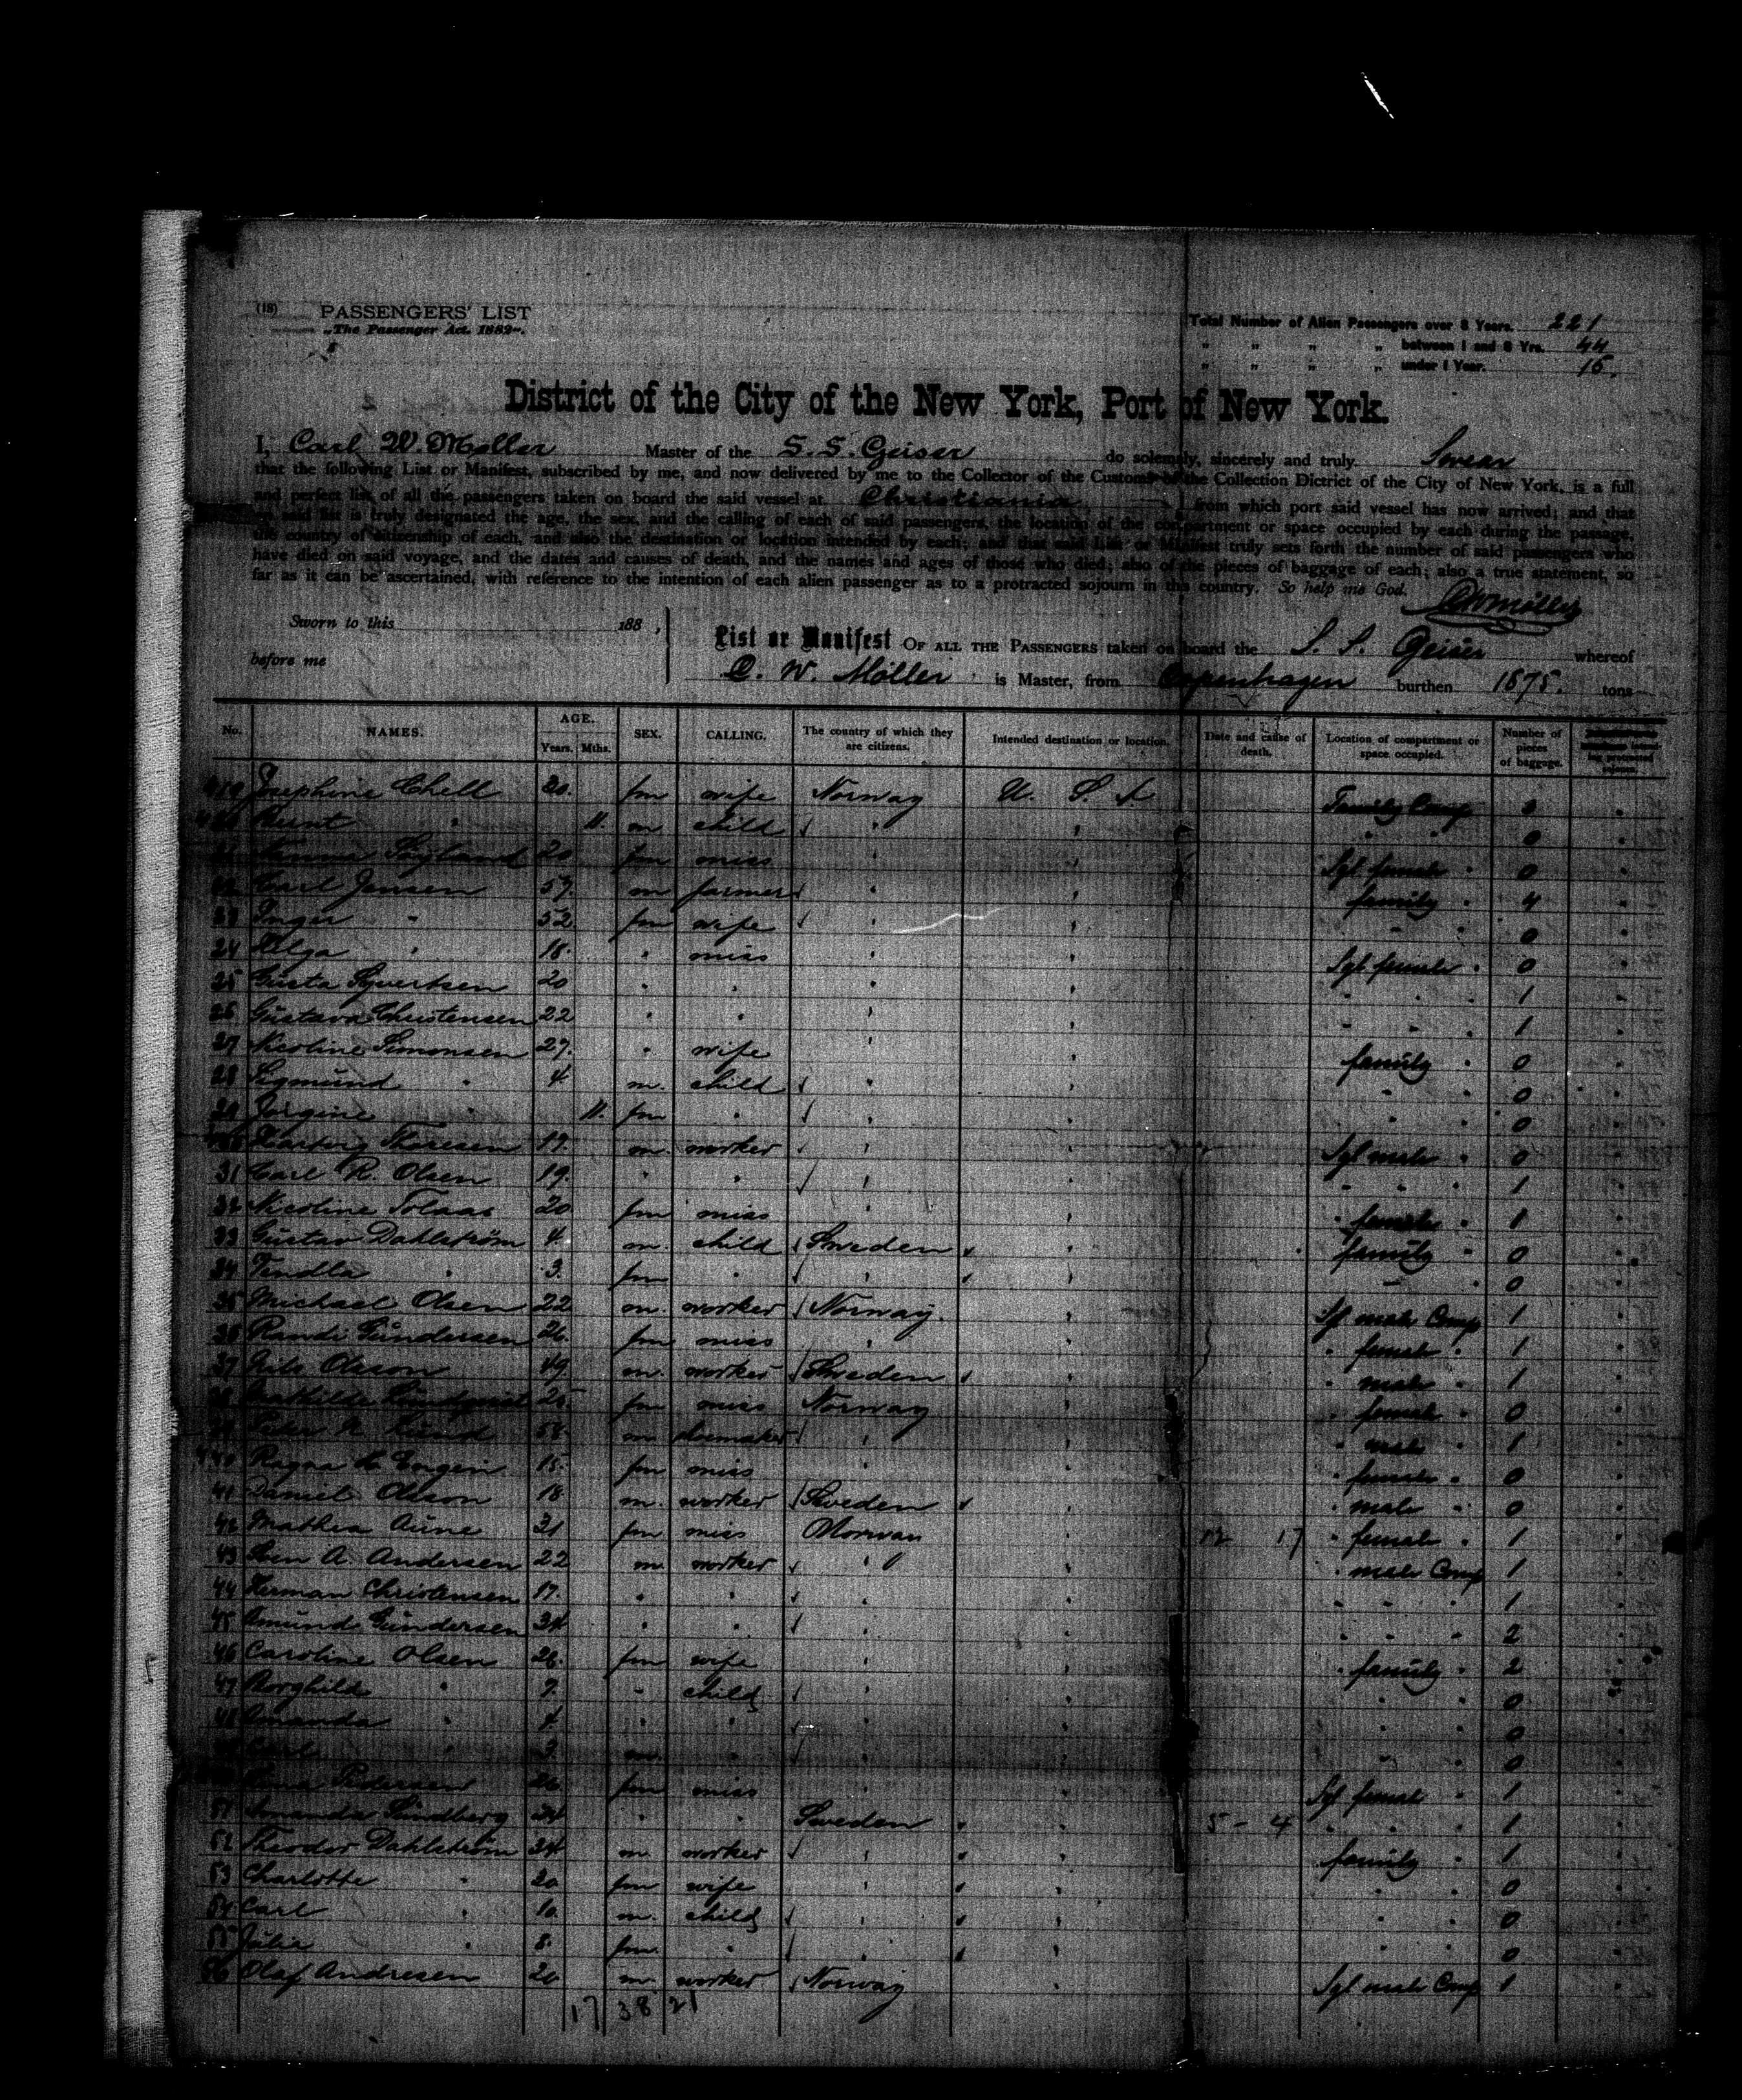 (18) PASSENGERS' LIST
„The Passenger Act. 1882".
Total Number of Alien Passengers over 8 Years. 221
„ „ „ „ between 1 and 8 Yrs. 44
„ „ „ „ under 1 Year. 15.
District of the City of the New York, Port of New York.
I, Carl W. Møller Master of the S. S. Geiser do solemnly, sincerely and truly Swear
that the following List or Manifest, subscribed by me, and now delivered by me to the Collector of the Customs of the Collection District of the City of New York, is a full
and perfect list of all the passengers taken on board the said vessel at Christiania from which port said vessel has now arrived; and that
on said list is truly designated the age, the sex, and the calling of each of said passengers, the location of the compartment or space occupied by each during the passage,
the country of citizenship of each, and also the destination or location intended by each; and that said List or Manifest truly sets forth the number of said passengers who
have died on said voyage, and the dates and causes of death, and the names and ages of those who died; also of the pieces of baggage of each; also a true statement, so
far as it can be ascertained, with reference to the intention of each alien passenger as to a protracted sojourn in this country. So help me God. CWMöller
Sworn to this 188 ,
before me
List or Manifest OF ALL THE PASSENGERS taken on board the S. S. Geiser whereof
C. W. Möller is Master, from Copenhagen burthen 1875. tons
No. NAMES. AGE. Years. Mths. SEX. CALLING. The country of which they are citizens. Intended destination or location. Date and cause of death. Location of compartment or space occupied. Number of pieces of baggage.
Josephine Chell 20. fm wife Norway U. S. A Family Comp
Bernt " 11. m child " " " " 0
20 fm miss " " Sgl female " 0
Carl Jensen 57. m farmer " " family " 4
23 Inger " 52 fm wife " " " " 0
24 Olga " 18. " miss " " Sgl female " 0
25 Gusta Syvertsen 20 " " " " " " 1
26 Gustava Christensen 22 " " " " " " 1
27 Nicoline Simonsen 27. " wife " " family " 0
28 Sigmund " 4 m. child " " " " 0
29 Jörgine " 11. fm " " " " " 0
Thoresen 17. m. worker " " Sgl male " 0
31 Carl R. Olsen 19. " " " " " " 1
32 Nicoline Tolaas 20 fm miss " " " female " 1
33 Gustav Dahlström 4. m. child Sweden " family " 0
34 Tendla " 3. fm " " " " " 0
35 Michael Olsen 22 m. worker Norway. " Sgl male Comp 1
36 Randi Gundersen 26. fm miss " " " female " 1
37 Nils Olsson 49 m. worker Sweden " " male " 1
38 Mathilde 25 fm miss Norway " female " 0
Peter N. m shoemaker " " " male " 1
440 Ragna L. Engen 15. fm miss " " " female " 0
41 Daniel Olsson 18 m. worker Sweden " " male " 0
42 Mathea Aune 31 fm miss Norway " 12 17 " female " 1
43 A. Andersen 22 m worker " " " male Comp 1
44 Herman Christensen 17. " " " " " " " 1
45 Amund Gundersen 34 " " " " " " " 2
46 Caroline Olsen 26. fm wife " " " family " 2
47 Borghild " 7. " child " " " " 0
48 Amanda " 4 " " " " " " 0
Carl " 3. m. " " " " " 0
Pedersen 26. fm miss " " Sgl female " 1
51 Amanda Sundberg 24 " " Sweden " 5 - 4 " " " 1
52 Theodor Dahlström 34 m. worker " " family " 1
53 Charlotte " 20 fm wife " " " " 0
54 Carl " 10 m. child " " " " 0
55 Julie " 8. fm. " " " " " 0
56 Olaf Andresen 20 m worker Norway " Sgl male Comp 1
17 38 21